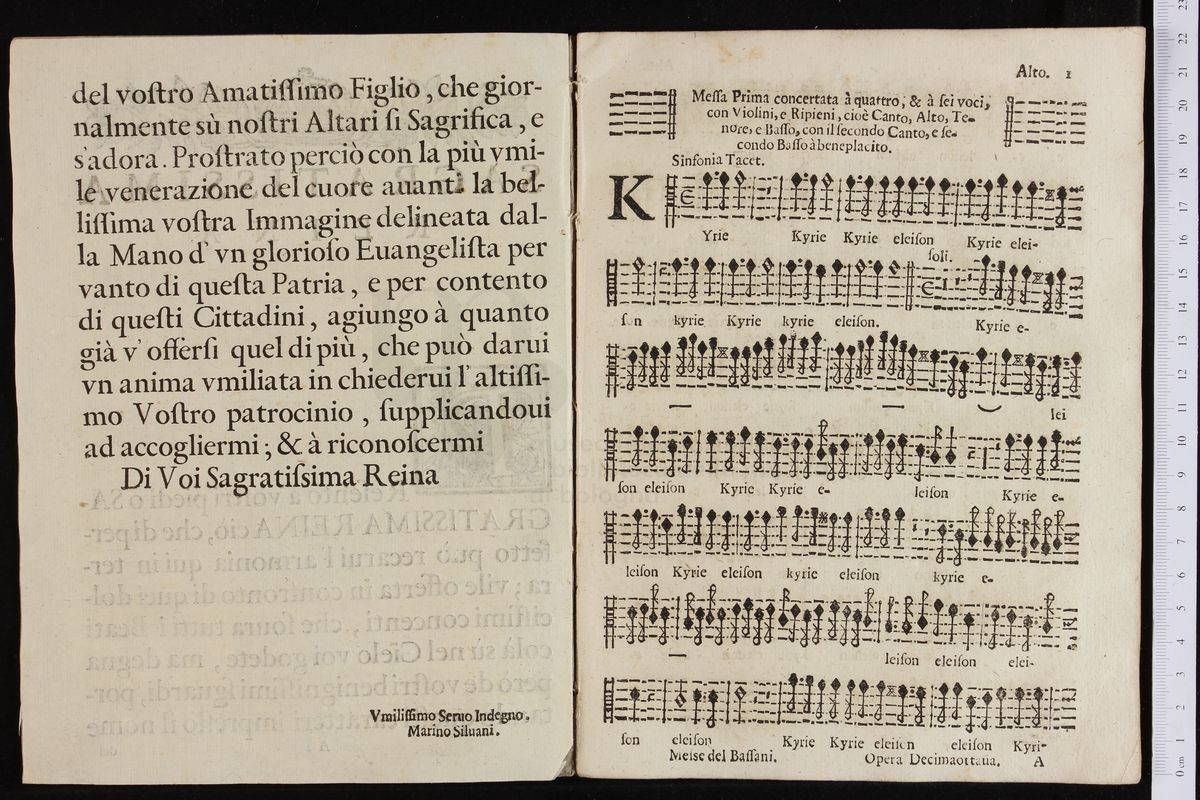 del voſtro Amatiſſimo Figlio, che gior-
nalmente sù noſtri Altari ſi Sagrifica, e
s'adora. Proſtrato perciò con la più vmi-
le venerazione del cuore auanti la bel-
liſſima voſtra Immagine delineata dal-
la Mano d' vn glorioſo Euangeliſta per
vanto di queſta Patria, e per contento
di queſti Cittadini, agiungo à quanto
già v' offerſi quel di più, che può darui
vn anima vmiliata in chiederui l' altiſſi-
mo Voſtro patrocinio, ſupplicandoui
ad accogliermi; & à riconoſcermi
Di Voi Sagratiſsima Reina
Vmiliſſimo Seruo Indegno.
Marino Siluani.
Alto. 1
Meſſa Prima concertata à quattro, & à ſei voci,
con Violini, e Ripieni, cioè Canto, Alto, Te-
nore, e Baſſo, con il ſecondo Canto, e ſe-
condo Baſſo à beneplacito.
Sinfonia Tacet.
KYrie Kyrie Kyrie eleiſon Kyrie elei-
ſoli.
ſon kyrie Kyrie kyrie eleiſon. Kyrie e-
lei
ſon eleiſon Kyrie Kyrie e- leiſon Kyrie e-
leiſon Kyrie eleiſon kyrie eleiſon kyrie e-
leiſon eleiſon elei-
ſon eleiſon Kyrie Kyrie eleiſon eleiſon Kyri-
Meſse del Baſſani. Opera Decimaottaua. A